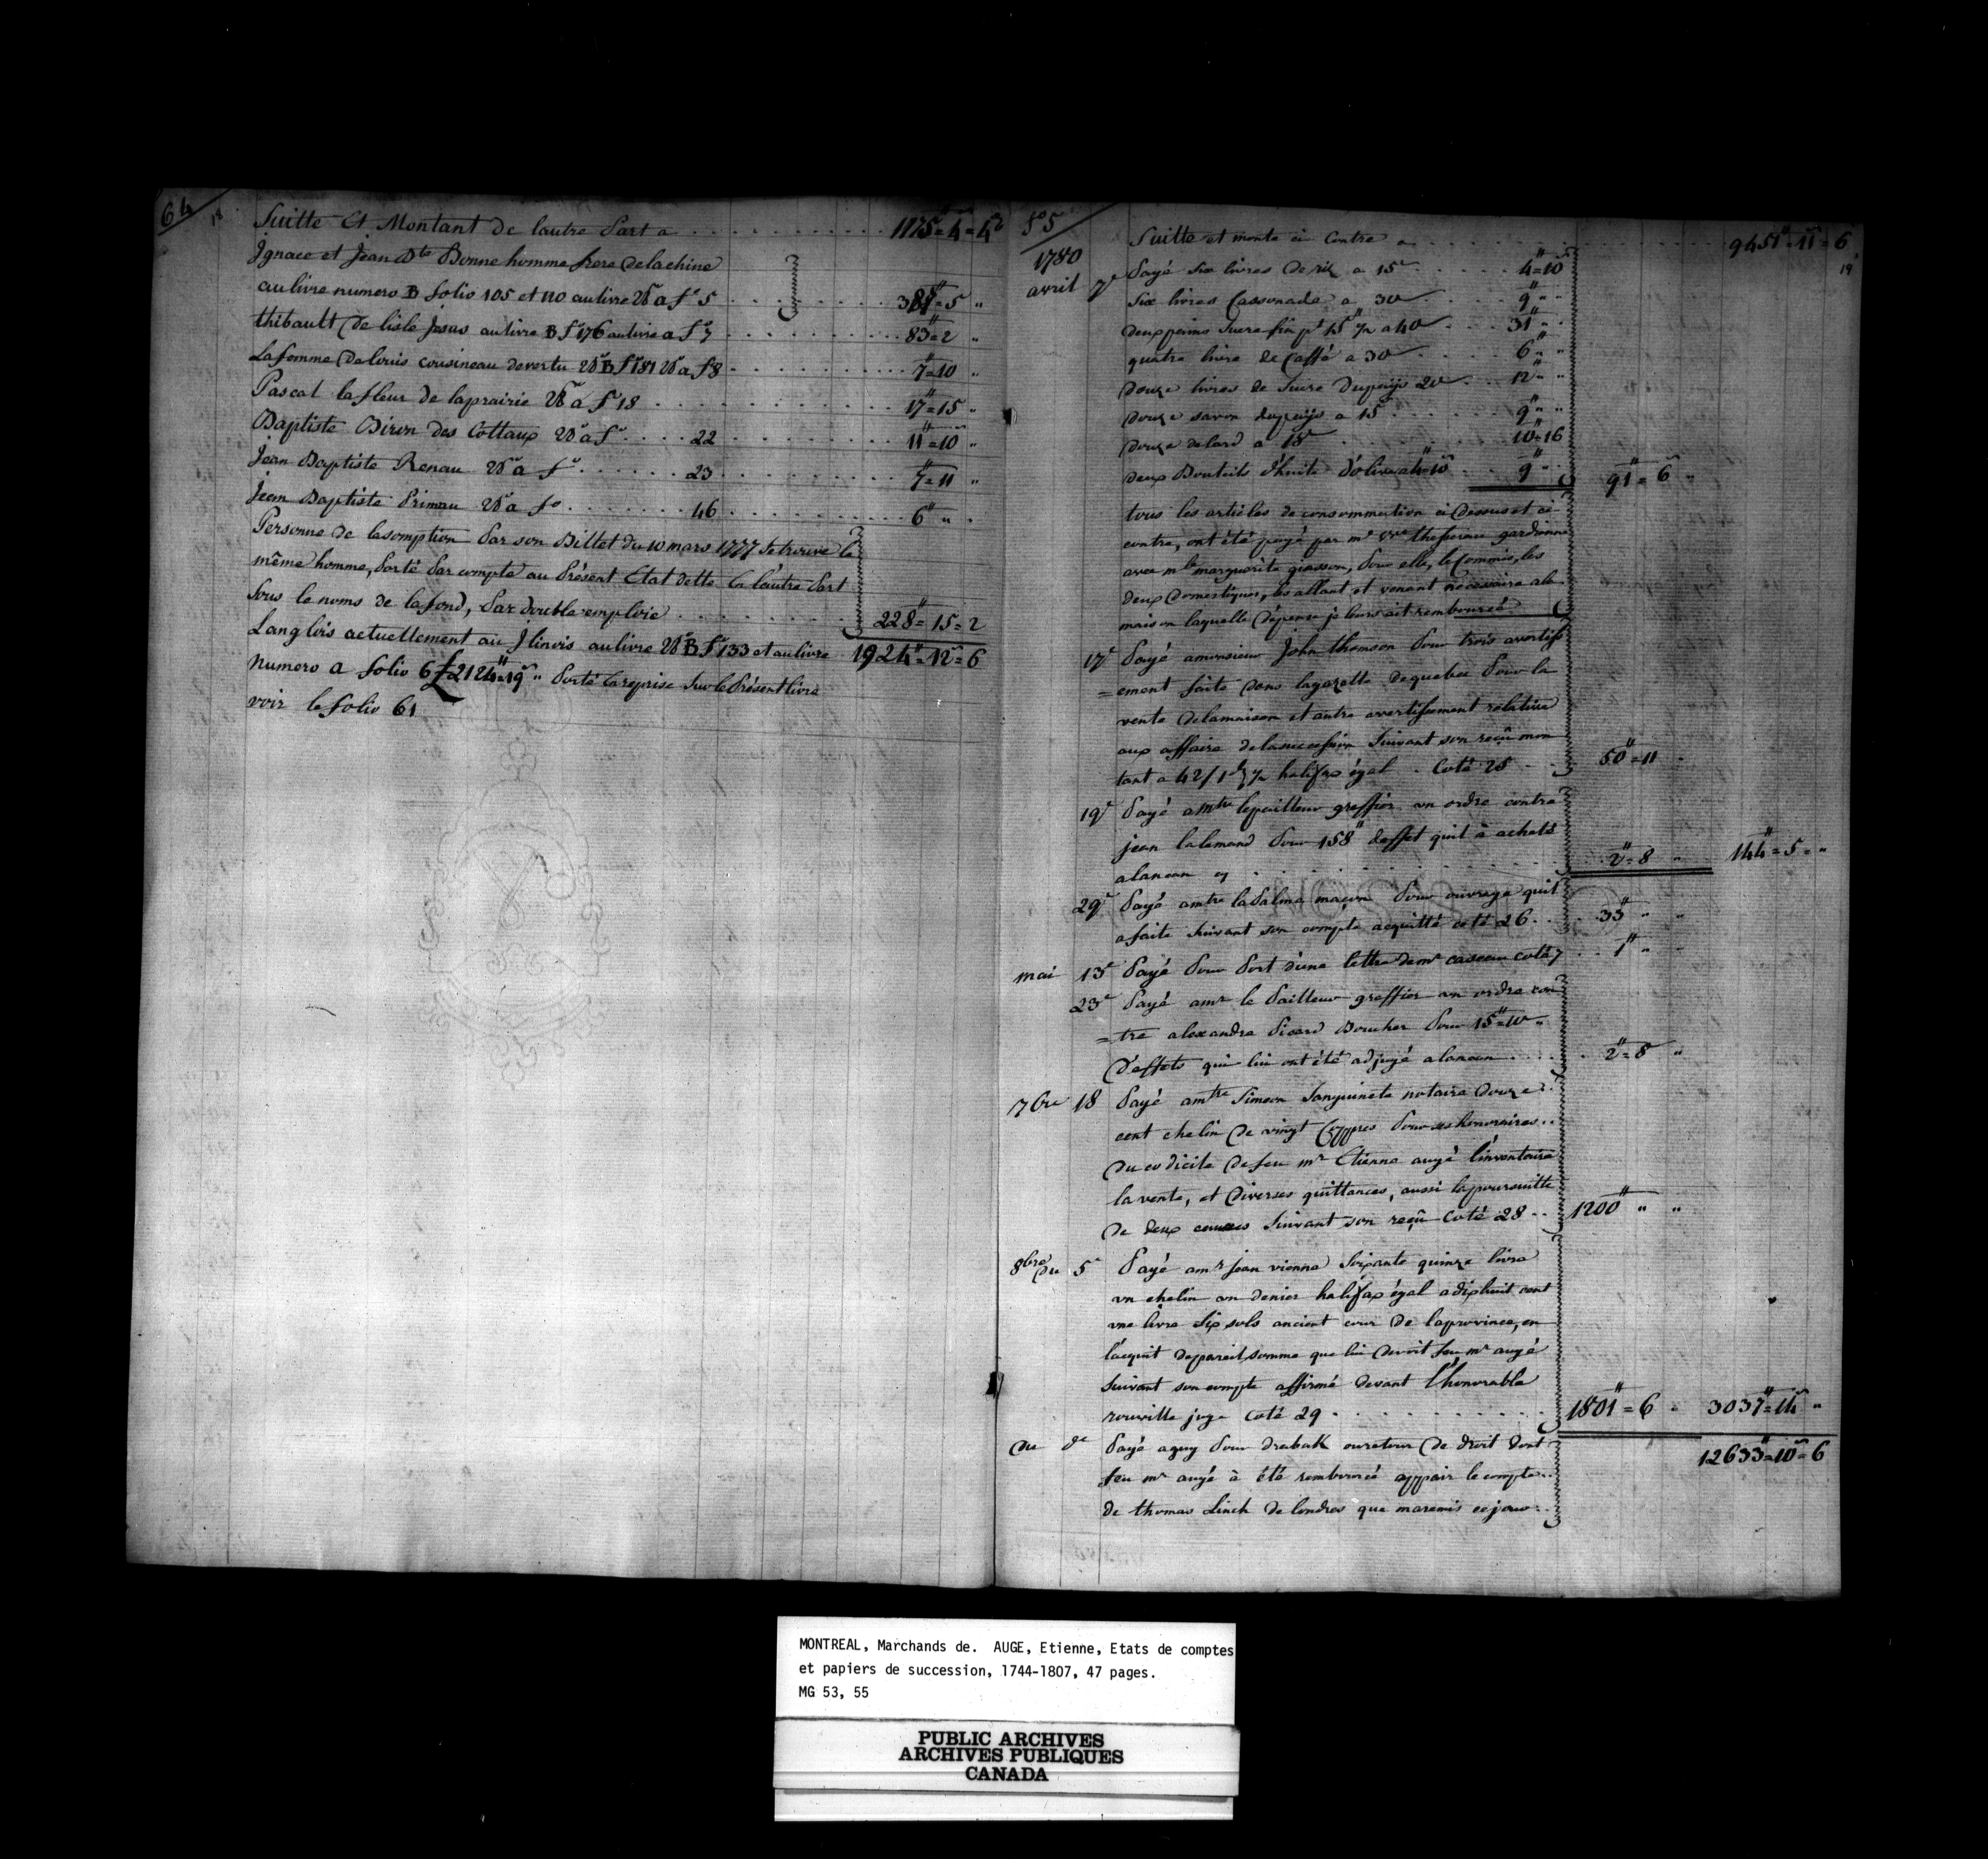 64
18
Suitte Et Montant de lautre Part a . . . 1175"=4=4
Ignace et Jean Bte Bonnehomme frere delachine
aulivre numero B folio 105 et 110 aulivre a fo 5 . . . =5 "
thibault De lisle Jesus aulivre B fo 176 aulivre a fo 7 . . . 83"=2 "
Lafemme Delouis cousineau devertu B fo 181 a fo 8 . . . 7"=10 "
Pascal lafleur de laprairie a fo 18 . . . 17"=15 "
Baptiste Biron Des Cottaux a fo . . . 22 . . . 11"=10 "
Jean Baptiste Renau a fo . . . 23 . . . 7"=11 "
Jean Baptiste Primau a fo . . . 46 . . . 6" " "
Personne de lasomption Par son Billet du 10 mars 1777 Setrouve le
même homme, Porté Par compte au Présent Etat dette Ca lautre Part
Sous le noms de lafond, Par double emploie . . . 228"=15=2
Langlois actuellement aü Jlinois aulivre B fo 133 et aulivre 1924"=12=6
numero a folio 6 £2124"=19 " Porté Careprise Sur le Présent livre
voir le folio 61
fo 5
19
1780
Suitte et monte ci Contre a . . . 9451"=11=6
avril 7e Payé Six livres De riz a 15s . . . 4"=10
Six livres Cassonade a 30s . . . 9" "
deux pains Sucre fin pt 15" 1/2 a 40s . . . 31" "
quatre livre de Caffé a 30s . . . 6" "
Douze livres de Sucre Dupaÿs 20s . . . 12" "
Douze savon dupaÿs a 15s . . . 9" "
Douze delard a 18s . . . 10"=16
deux Bouteils d'huile d'olive a 4"=10 . . . 9" " 91"=6 "
tous les articles de consommation ci Dessus et ci
contre, ont été payé par me gardienne
avec mlle marguerite giasson, Pour elle, le Commis, les
deux Domestiques, les allant et venant nécessaire ala
maison laquelle Dépense je leurs ait remboursé
17e Payé amonsieur John thomson Pour trois avertiss
=ement faite Dans lagazette dequebec Pour la
vente Delamaison et autre avertissement relative
aux affaire delasuccession Suivant son reçû mon
tant a 42/1d 1/2 halifax égal . Coté 25 . . . 50"=11 "
19e Payé a mtre lepailleur greffier un ordre contre
jean lalemand Pour 158" deffet quil à achaté
alancan cy . . . 2"=8 " 144"=5="
29e Payé a mtre laPalme maçon Pour ouvrage quil
a faite Suivant son compte acquitté coté 26 . . . 33" " "
mai 13e Payé Pour Port d'une lettre de mr caseau coté 7 . . . 1" " "
23e Payé a mr le Pailleur greffier un ordre con
=tre alexandre Picard Boucher Pour 15"=10 "
D'effets qui lui ont été adjugé alancan . . . 2"=8 "
7bre 18 Payé a mtre Simeon Sanguinete notaire Douze
cent chelin De vingt Coppres Pour ses honoraires
Du codicile De feu mr Etienne augé l'inventaire
la vente, et Diverses quittances, aussi lapoursuitte
De deux causes Suivant son reçû Coté 28 . . . 1200" " "
8bre Du 5e Payé a mr jean vienne Soixante quinze livre
un chelin un denier halifax égal adixhuit cent
une livre Six sols ancient cour De laprovince, en
lacquit depareil somme que lui Devoit feu mr augé
Suivant son compte affirmé Devant l'honorable
rouville juge Coté 29 . . . 1801"=6 " 3037"=14 "
12633"=10=6
Du de Payé aguy Pour De droit Dont
feu mr augé à été remboursé appair le compte
de thomas Linch De londres que maremis cejour
MONTREAL, Marchands de. AUGE, Etienne, Etats de comptes
et papiers de succession, 1744-1807, 47 pages.
MG 53, 55
PUBLIC ARCHIVES
ARCHIVES PUBLIQUES
CANADA